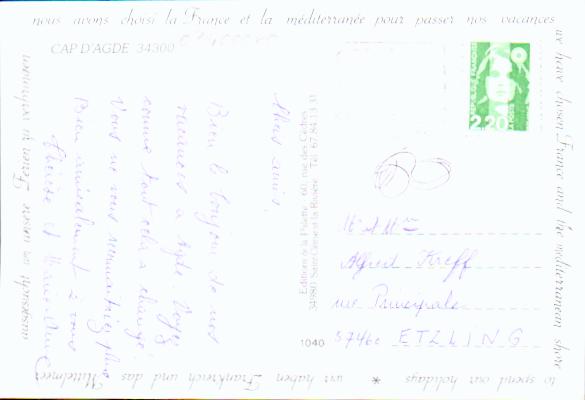 nous avons choisi la France et la méditerranée pour passer nos vacances
we have chosen France and the mediterranean shore
to spend our holidays * wir haben Frankreich und das Mittelmeer
ausgesucht um unsere Ferien zu verbringen
CAP D'AGDE 34300
Chers amis,
Bien le bonjour de nos
vacances à Agde. Voyez
comme tout cela a changé.
Vous ne vous reconnaîtriez plus
Bien amicalement à vous
Thérèse et
Editions de la Palette 60, rue des Cèdres
34980 Saint-Clément-la-Rivière Tél. 67.84.13.31
1040
REPUBLIQUE FRANCAISE
2,20
LA POSTE
Mr et Mme
Alfred Kreff
rue Principale
57460 ETZLING